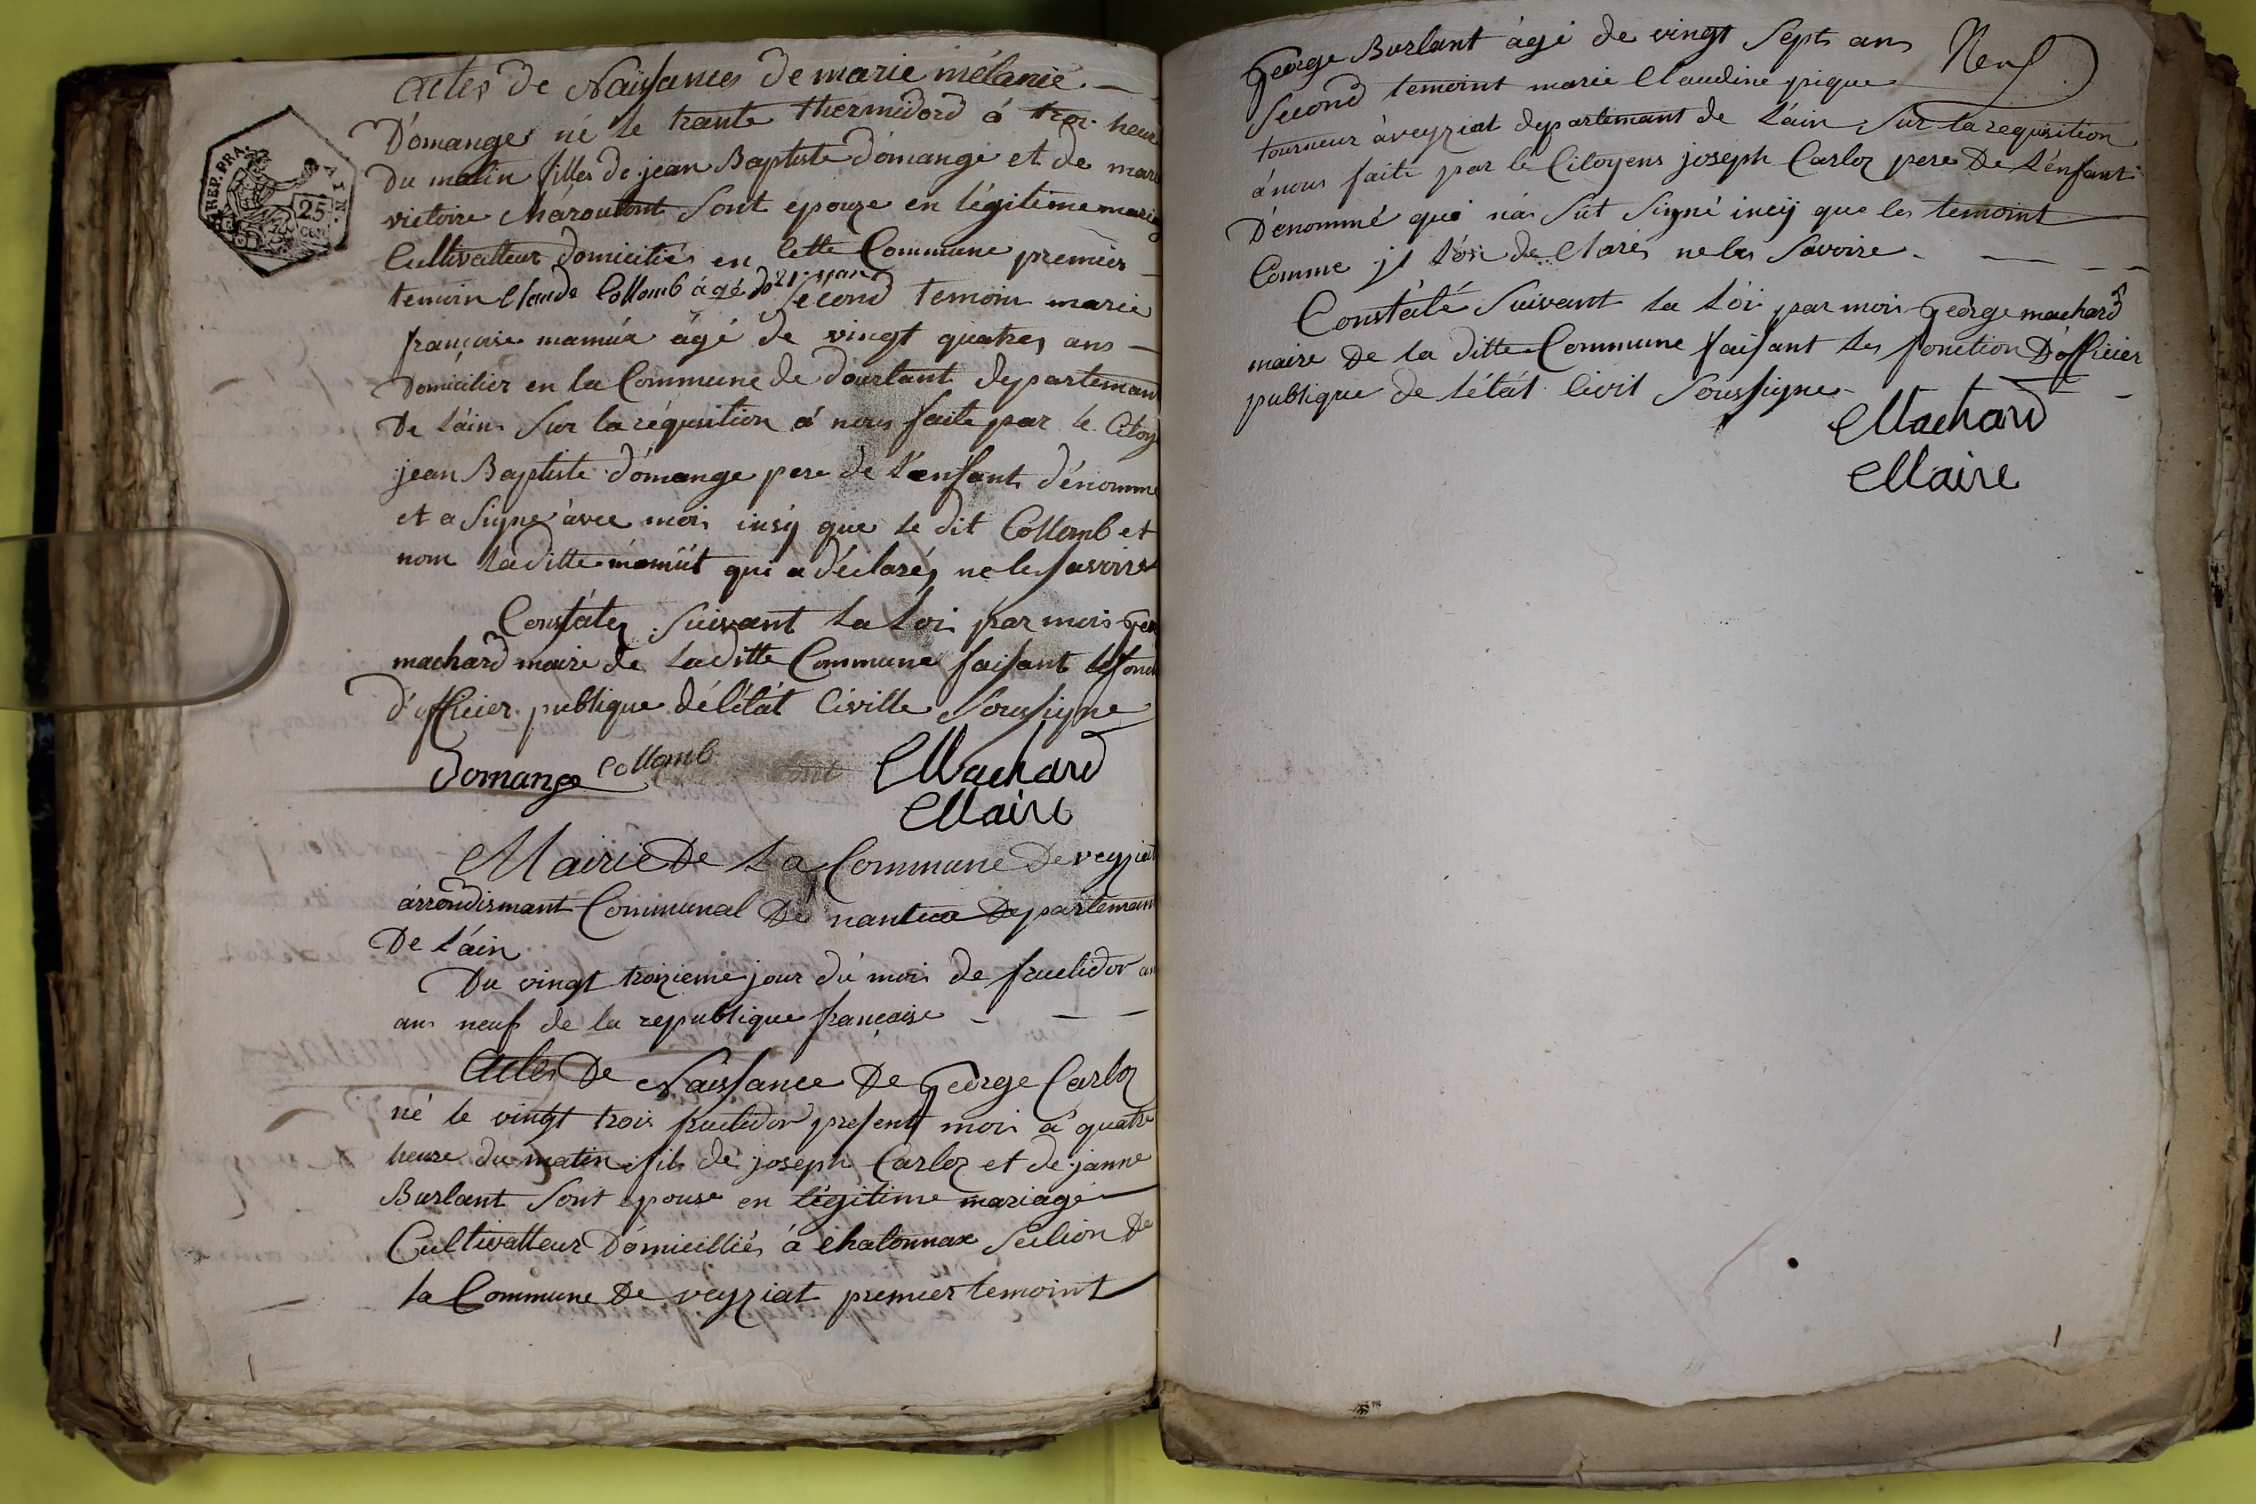 actes de Naissances de marie mélanie -
D'omange né le trante thermidord à troi heur
du matin filles de jean Baptiste d'omange et de mari
victoire sont epouze en légitime mariag
Cultivatteur domiciliés en Cette Commune premier -
temoin Claude Collomb âgé de 21 ans second temoin marie
françoise mamúx âgé de vingt quatres ans -
Domicilier en la Commune de dourtant departemant
De l'ain Sur la réquisition à nous faite par le Citoy
jean Baptiste d'omange pere de l'enfant dénommé
et a signé avec moi insÿ que le dit Collomb et
nom laditte mamüt qui a déclarés ne le savoire
Constatés Suivant la loi par moi Geor
machard maire de laditte Commune faisant les fonct
d'officier publique de l'état Civille soussigne
Domange Collomb Machard
Maire
Mairie De la Commune de veyziat
arrondismant Communal De nantua Departemant
De l'ain
Du vingt troizieme jour du mois de fructidor an
an neuf de la republique française - - -
Actes De Naissance De George Carloz
né le vingt trois fructidor present mois à quatre
heure du matin fils de joseph Carloz et de janne
Burlant sont epouse en légitime mariage
Cultivatteur Domicilliés à chatonnax Section De
la Commune De veyziat premier temoint
George Burlant âgé de vingt sept ans
Neuf
second temoint marie Claudine pique
tourneur à veyziat departemant de l'ain Sur la requisition
à nous faite par le Citoyens joseph Carloz pere De l'enfant
Dénommé qui na sut signé incÿ que les temoint
Comme jl l'on declarés ne les savoire - - - -
Constàté Suivant la loi par moi George machard
maire De la ditte Commune faisant les fonction D'officier
publique de l'état Civil soussigne -
Machard
Maire
REP. FRA.
AIN.
25
CEN.